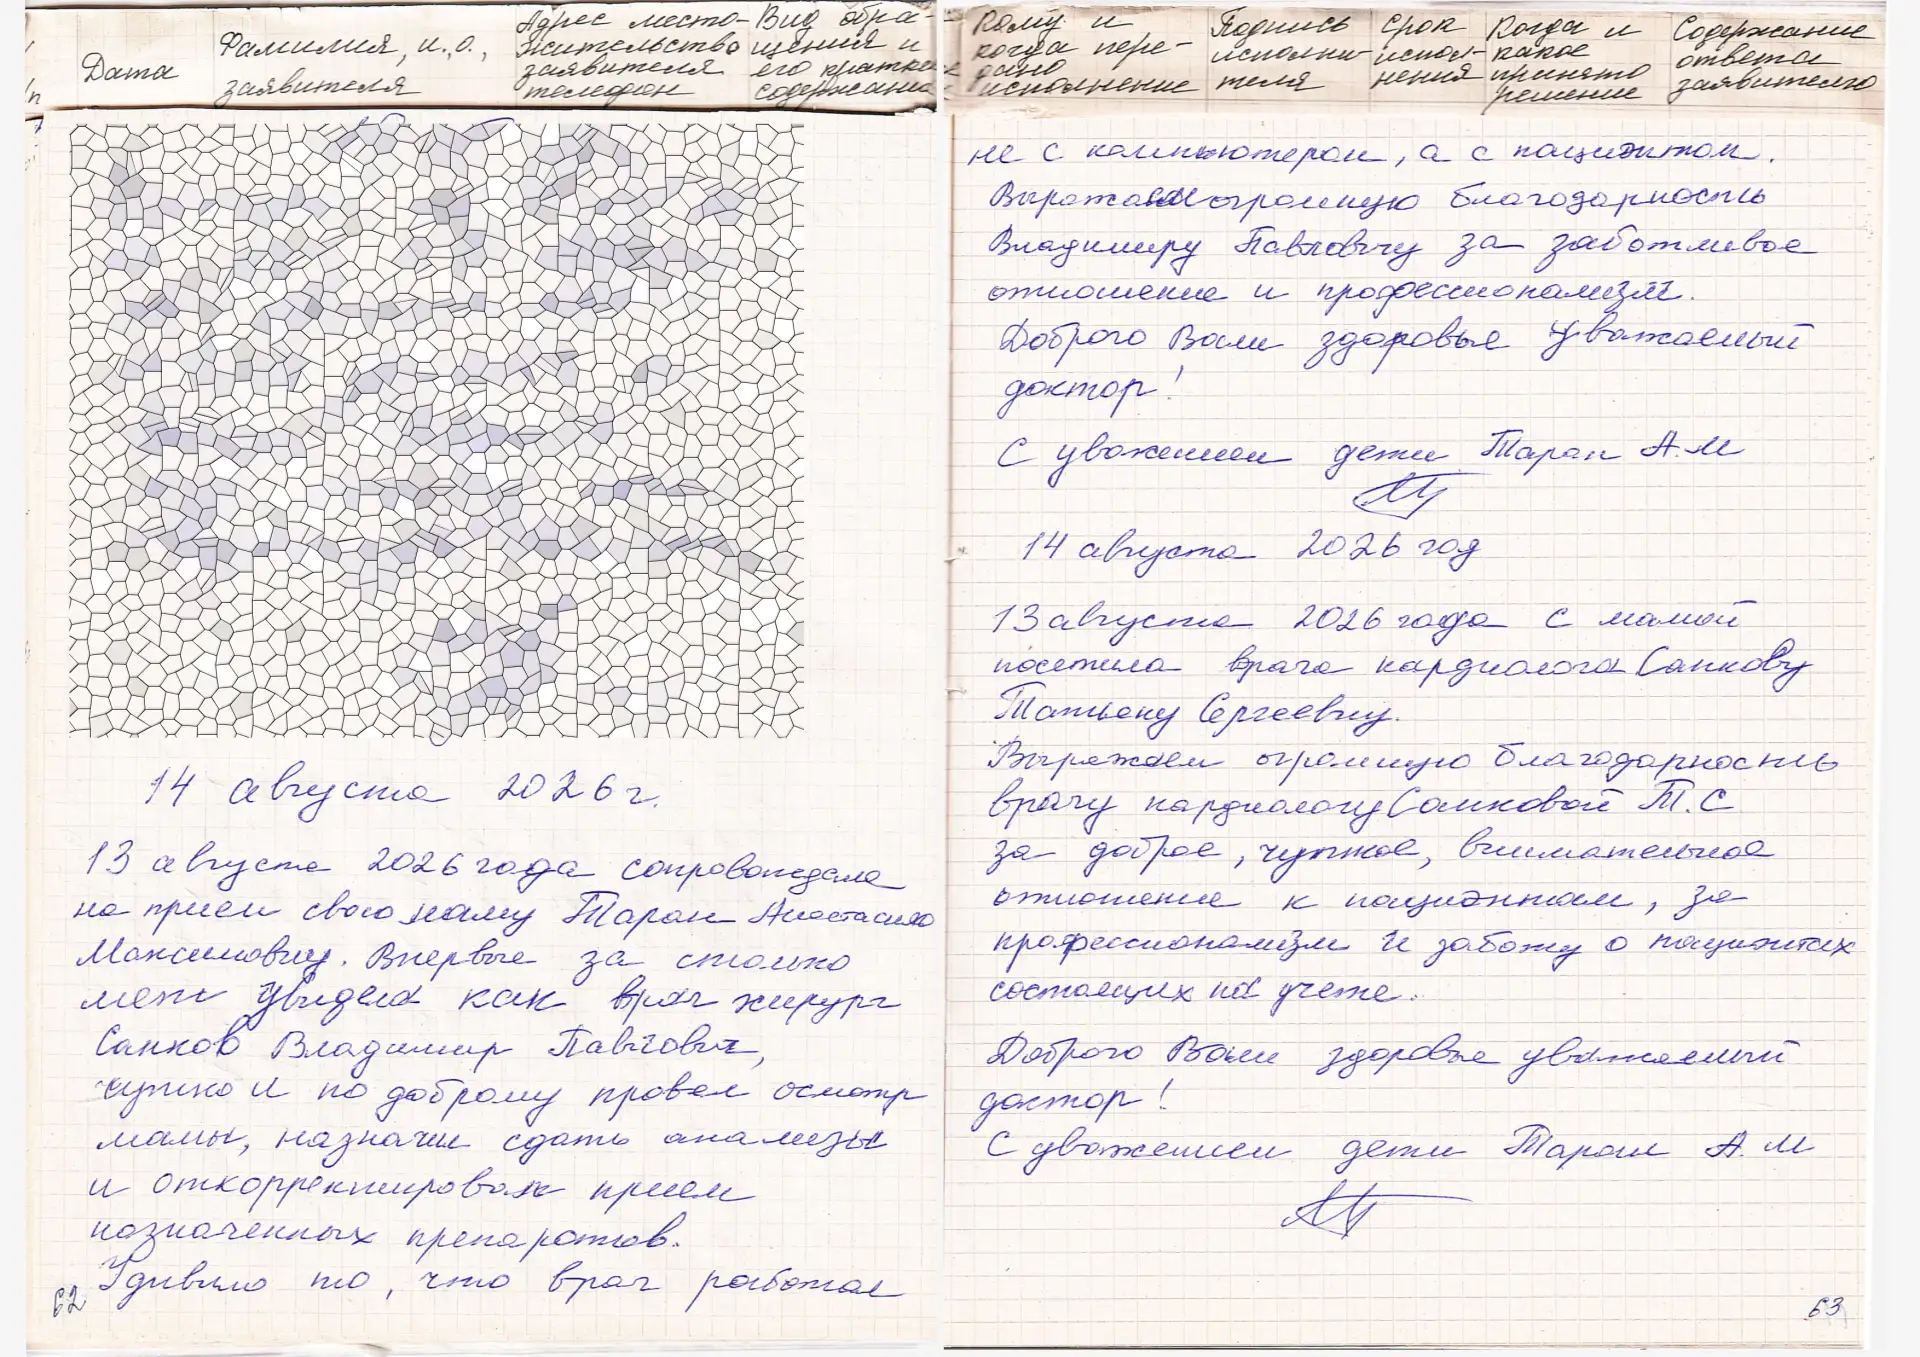 п/п
Дата
Фамилия, и.о.,
заявителя
Адрес место-
жительство
заявителя
телефон
Вид обра-
щения и
его краткое
содержание
Кому и
когда пере-
дано
исполнение
Подпись
исполни-
теля
Срок
испол-
нения
Когда и
какое
принято
решение
Содержание
ответа
заявителю
14 августа 2026 г.
13 августа 2026 года сопровождала
на прием свою маму Таран Анастасию
Максимовну. Впервые за столько
лет увидела как врач хирург
Санков Владимир Павлович,
чутко и по доброму провел осмотр
мамы, назначил сдать анализы
и откорректировал прием
назначенных препаратов.
Удивило то, что врач работал
62
не с компьютером, а с пациэнтом.
Выражаем огромную благодарность
Владимиру Павловичу за заботливое
отношение и профессионализм.
Доброго Вам здоровье Уважаемый
доктор!
С уважением дети Таран А.М
14 августа 2026 год
13 августа 2026 года с мамой
посетила врача кардиолога Санкову
Татьяну Сергеевну.
Выражаем огромную благодарность
врачу кардиологу Санковой Т.С
за доброе, чуткое, внимательное
отношение к пациэнтам, за
профессионализм и заботу о пациэнтах
состоящих на учете.
Доброго Вам здоровье уважаемый
доктор!
С уважением дети Таран А.М
63